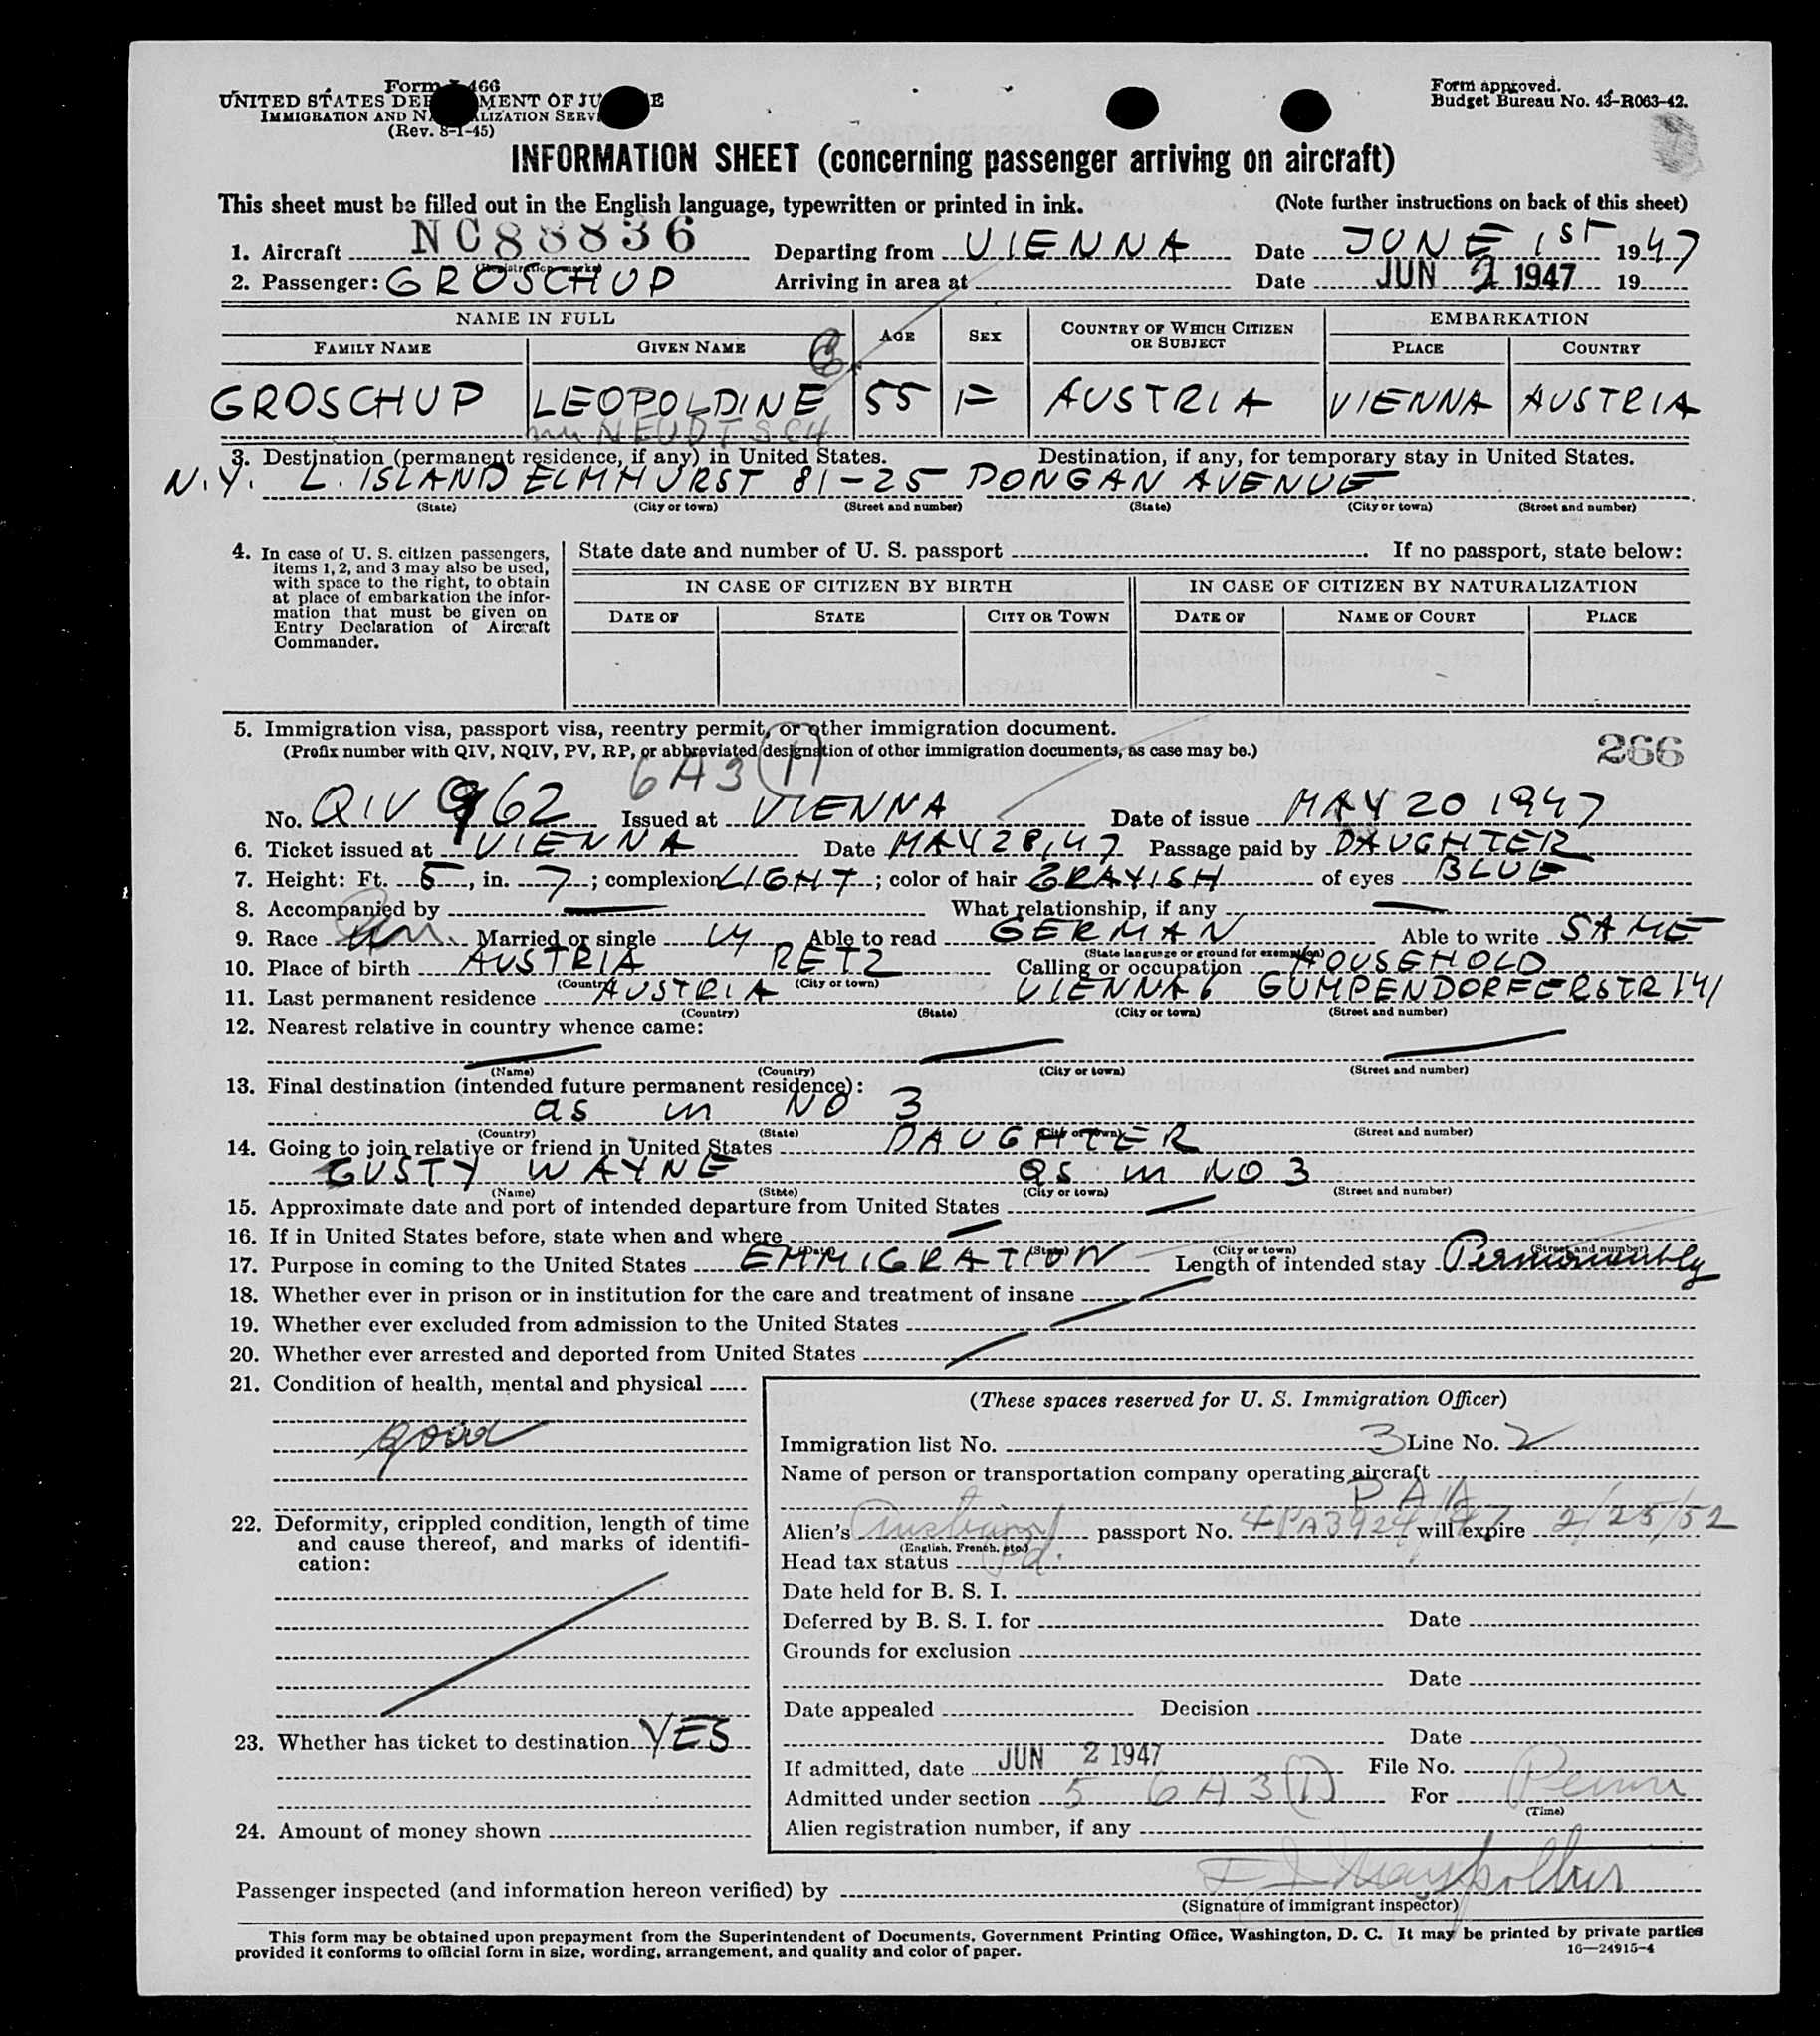 Form I-466
UNITED STATES DEPARTMENT OF JUSTICE
IMMIGRATION AND NATURALIZATION SERVICE
(Rev. 8-1-45)
Form approved.
Budget Bureau No. 43-R063-42.
INFORMATION SHEET (concerning passenger arriving on aircraft)
This sheet must be filled out in the English language, typewritten or printed in ink. (Note further instructions on back of this sheet)
1. Aircraft NC88836 Departing from VIENNA Date JUNE 1ST 1947
(Registration marks)
2. Passenger: GROSCHUP Arriving in area at Date JUN 2 1947 19
NAME IN FULL AGE SEX COUNTRY OF WHICH CITIZEN OR SUBJECT EMBARKATION
FAMILY NAME GIVEN NAME PLACE COUNTRY
GROSCHUP LEOPOLDINE 55 F AUSTRIA VIENNA AUSTRIA
NEUDTSCH
3. Destination (permanent residence, if any) in United States. Destination, if any, for temporary stay in United States.
N.Y. L. ISLAND ELMHURST 81-25 DONGAN AVENUE
(State) (City or town) (Street and number) (State) (City or town) (Street and number)
4. In case of U. S. citizen passengers, items 1, 2, and 3 may also be used, with space to the right, to obtain at place of embarkation the information that must be given on Entry Declaration of Aircraft Commander.
State date and number of U. S. passport . If no passport, state below:
IN CASE OF CITIZEN BY BIRTH IN CASE OF CITIZEN BY NATURALIZATION
DATE OF STATE CITY OR TOWN DATE OF NAME OF COURT PLACE
5. Immigration visa, passport visa, reentry permit, or other immigration document.
(Prefix number with QIV, NQIV, PV, RP, or abbreviated designation of other immigration documents, as case may be.)
266
6A3(1)
No. QIV 962 Issued at VIENNA Date of issue MAY 20 1947
6. Ticket issued at VIENNA Date MAY 28, 47 Passage paid by DAUGHTER
7. Height: Ft. 5, in. 7; complexion LIGHT; color of hair GRAYISH of eyes BLUE
8. Accompanied by — What relationship, if any —
9. Race Married or single Able to read GERMAN Able to write SAME
(State language or ground for exemption)
10. Place of birth AUSTRIA RETZ Calling or occupation HOUSEHOLD
(Country) (City or town)
11. Last permanent residence AUSTRIA VIENNA 6 GUMPENDORFERSTR 141
(Country) (State) (City or town) (Street and number)
12. Nearest relative in country whence came:
— — —
(Name) (Country) (City or town) (Street and number)
13. Final destination (intended future permanent residence):
as in NO 3
(Country) (State) (City or town) (Street and number)
14. Going to join relative or friend in United States DAUGHTER
GUSTY WAYNE as in NO 3
(Name) (State) (City or town) (Street and number)
15. Approximate date and port of intended departure from United States —
16. If in United States before, state when and where —
(Date) (State) (City or town) (Street and number)
17. Purpose in coming to the United States EMMIGRATION Length of intended stay Permanently
18. Whether ever in prison or in institution for the care and treatment of insane —
19. Whether ever excluded from admission to the United States —
20. Whether ever arrested and deported from United States —
21. Condition of health, mental and physical
good
22. Deformity, crippled condition, length of time and cause thereof, and marks of identification:
23. Whether has ticket to destination YES
24. Amount of money shown
(These spaces reserved for U. S. Immigration Officer)
Immigration list No. 3 Line No. 2
Name of person or transportation company operating aircraft
PAA
Alien's Austrian passport No. 4PA3924/47 will expire 2/25/52
(English, French, etc.)
Head tax status Pd.
Date held for B. S. I.
Deferred by B. S. I. for Date
Grounds for exclusion
Date
Date appealed Decision
Date
If admitted, date JUN 2 1947 File No.
Admitted under section 5 6A3(1) For Perm
(Time)
Alien registration number, if any
Passenger inspected (and information hereon verified) by
(Signature of immigrant inspector)
This form may be obtained upon prepayment from the Superintendent of Documents, Government Printing Office, Washington, D. C. It may be printed by private parties
provided it conforms to official form in size, wording, arrangement, and quality and color of paper. 16—24915-4